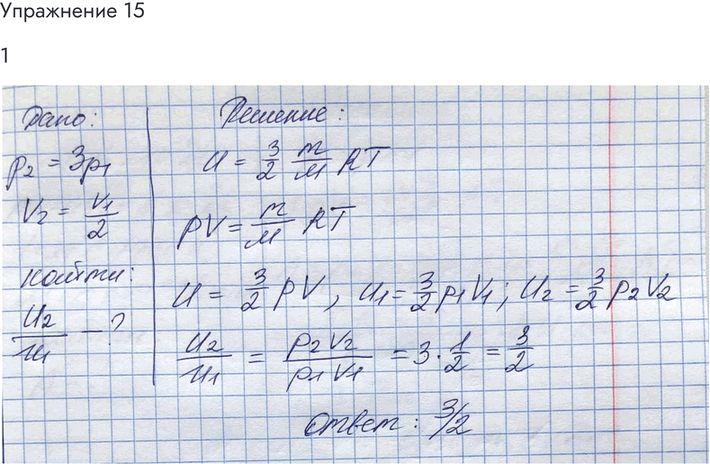 Упражнение 15
1
Дано:
p₂ = 3p₁
V₂ = V₁/2
Найти:
U₂/U₁ – ?
Решение:
U = 3/2 m/M RT
pV = m/M RT
U = 3/2 pV, U₁ = 3/2 p₁V₁; U₂ = 3/2 p₂V₂
U₂/U₁ = p₂V₂/p₁V₁ = 3 · 1/2 = 3/2
Ответ: 3/2